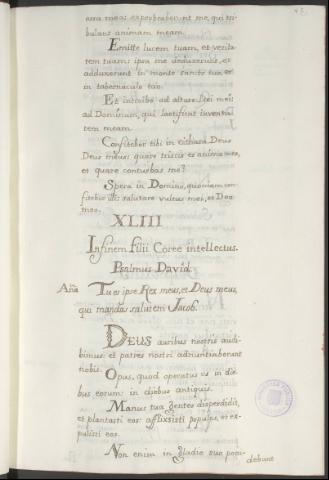 ossa mea: exprobraverunt me, qui tri-
bulant animam meam.
Emitte lucem tuam, et verita-
tem tuam: ipsa me deduxerunt, et
adduxerunt in monte sancto tuo, et
in tabernacula tua.
Et introibo ad altare Dei mei:
ad Dominum, qui laetificat iuventu-
tem meam.
Confitebor tibi in cithara Deus
Deus meus: quare tristis es anima mea,
et quare conturbas me?
Spera in Domino, quoniam con-
fitebor illi: salutare vultus mei, et Deus
meus.
XLIII
In finem filii Coree intellectus.
Psalmus David.
Aña Tu es ipse Rex meus, et Deus meus,
qui mandas salutem Jacob.
DEUS auribus nostris audi-
bimus: et patres nostri adnuntiaberunt
nobis.
Opus, quod operatus es in die-
bus eorum: in diebus antiquis.
Manus tua gentes disperdidit,
et plantasti eos: afflixsisti populos, et ex-
pulisti eos.
Non enim in gladio suo possi-
debunt